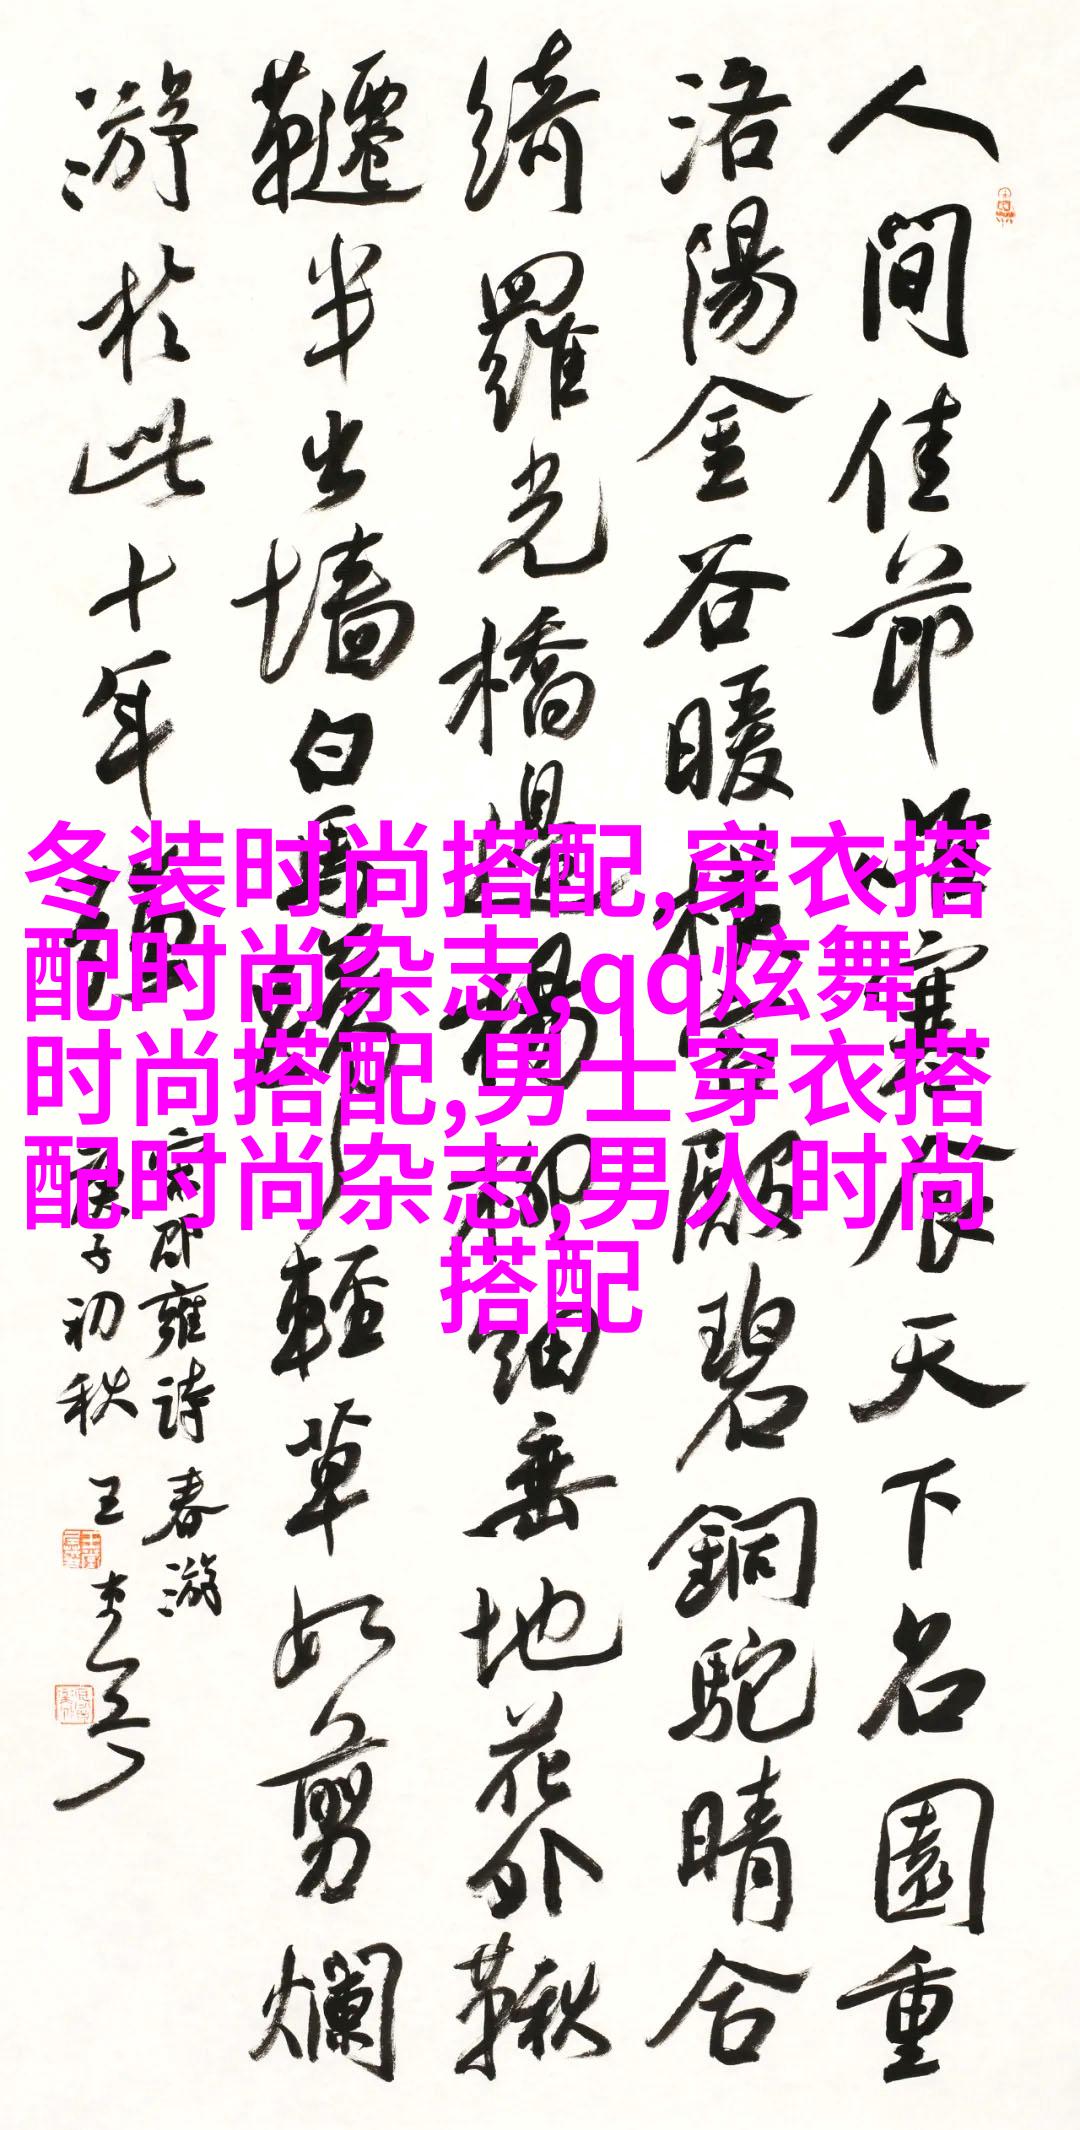 人間佳節惟寒食天下名園重
洛陽金谷暖橫宮殿碧銅駝晴合
綺羅光橋邊楊柳細垂地花外鞦
韆半出墻白馬蹄輕草如剪爛
游於此十年
宋邵雍詩春游
子初秋王
冬装时尚搭配,穿衣搭
配时尚杂志,qq炫舞
时尚搭配,男士穿衣搭
配时尚杂志,男人时尚
搭配